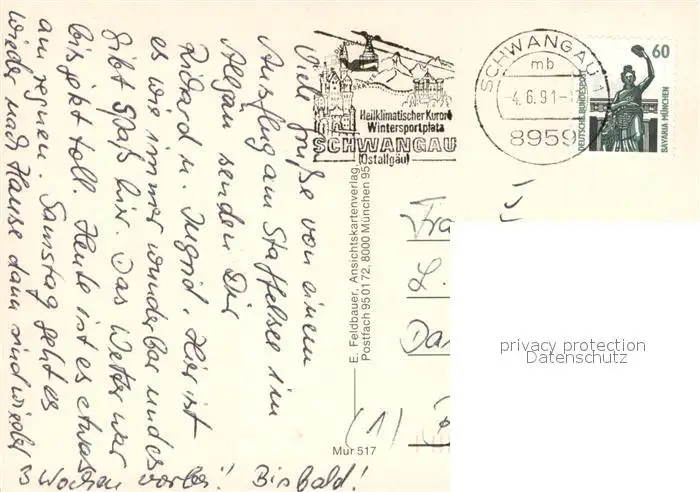 Viele Grüße von einem
Ausflug am Staffelsee im
Allgäu senden Dir
Richard u. Ingrid. Hier ist
es wie immer wunderbar und es
gibt Spaß hier. Das Wetter war
bis jetzt toll. Heute ist es etwas
am regnen. Samstag geht es
wieder nach Hause dann sind wieder
3 Wochen vorbei!! Bis bald!
Heilklimatischer Kurort
Wintersportplatz
SCHWANGAU
(Ostallgäu)
SCHWANGAU 1
mb
-4.6.91-
8959
60
DEUTSCHE BUNDESPOST
BAVARIA MÜNCHEN
E. Feldbauer, Ansichtskartenverlag
Postfach 95 01 72, 8000 München 95
Mur 517
Fra
L.
Da
(1)
privacy protection
Datenschutz